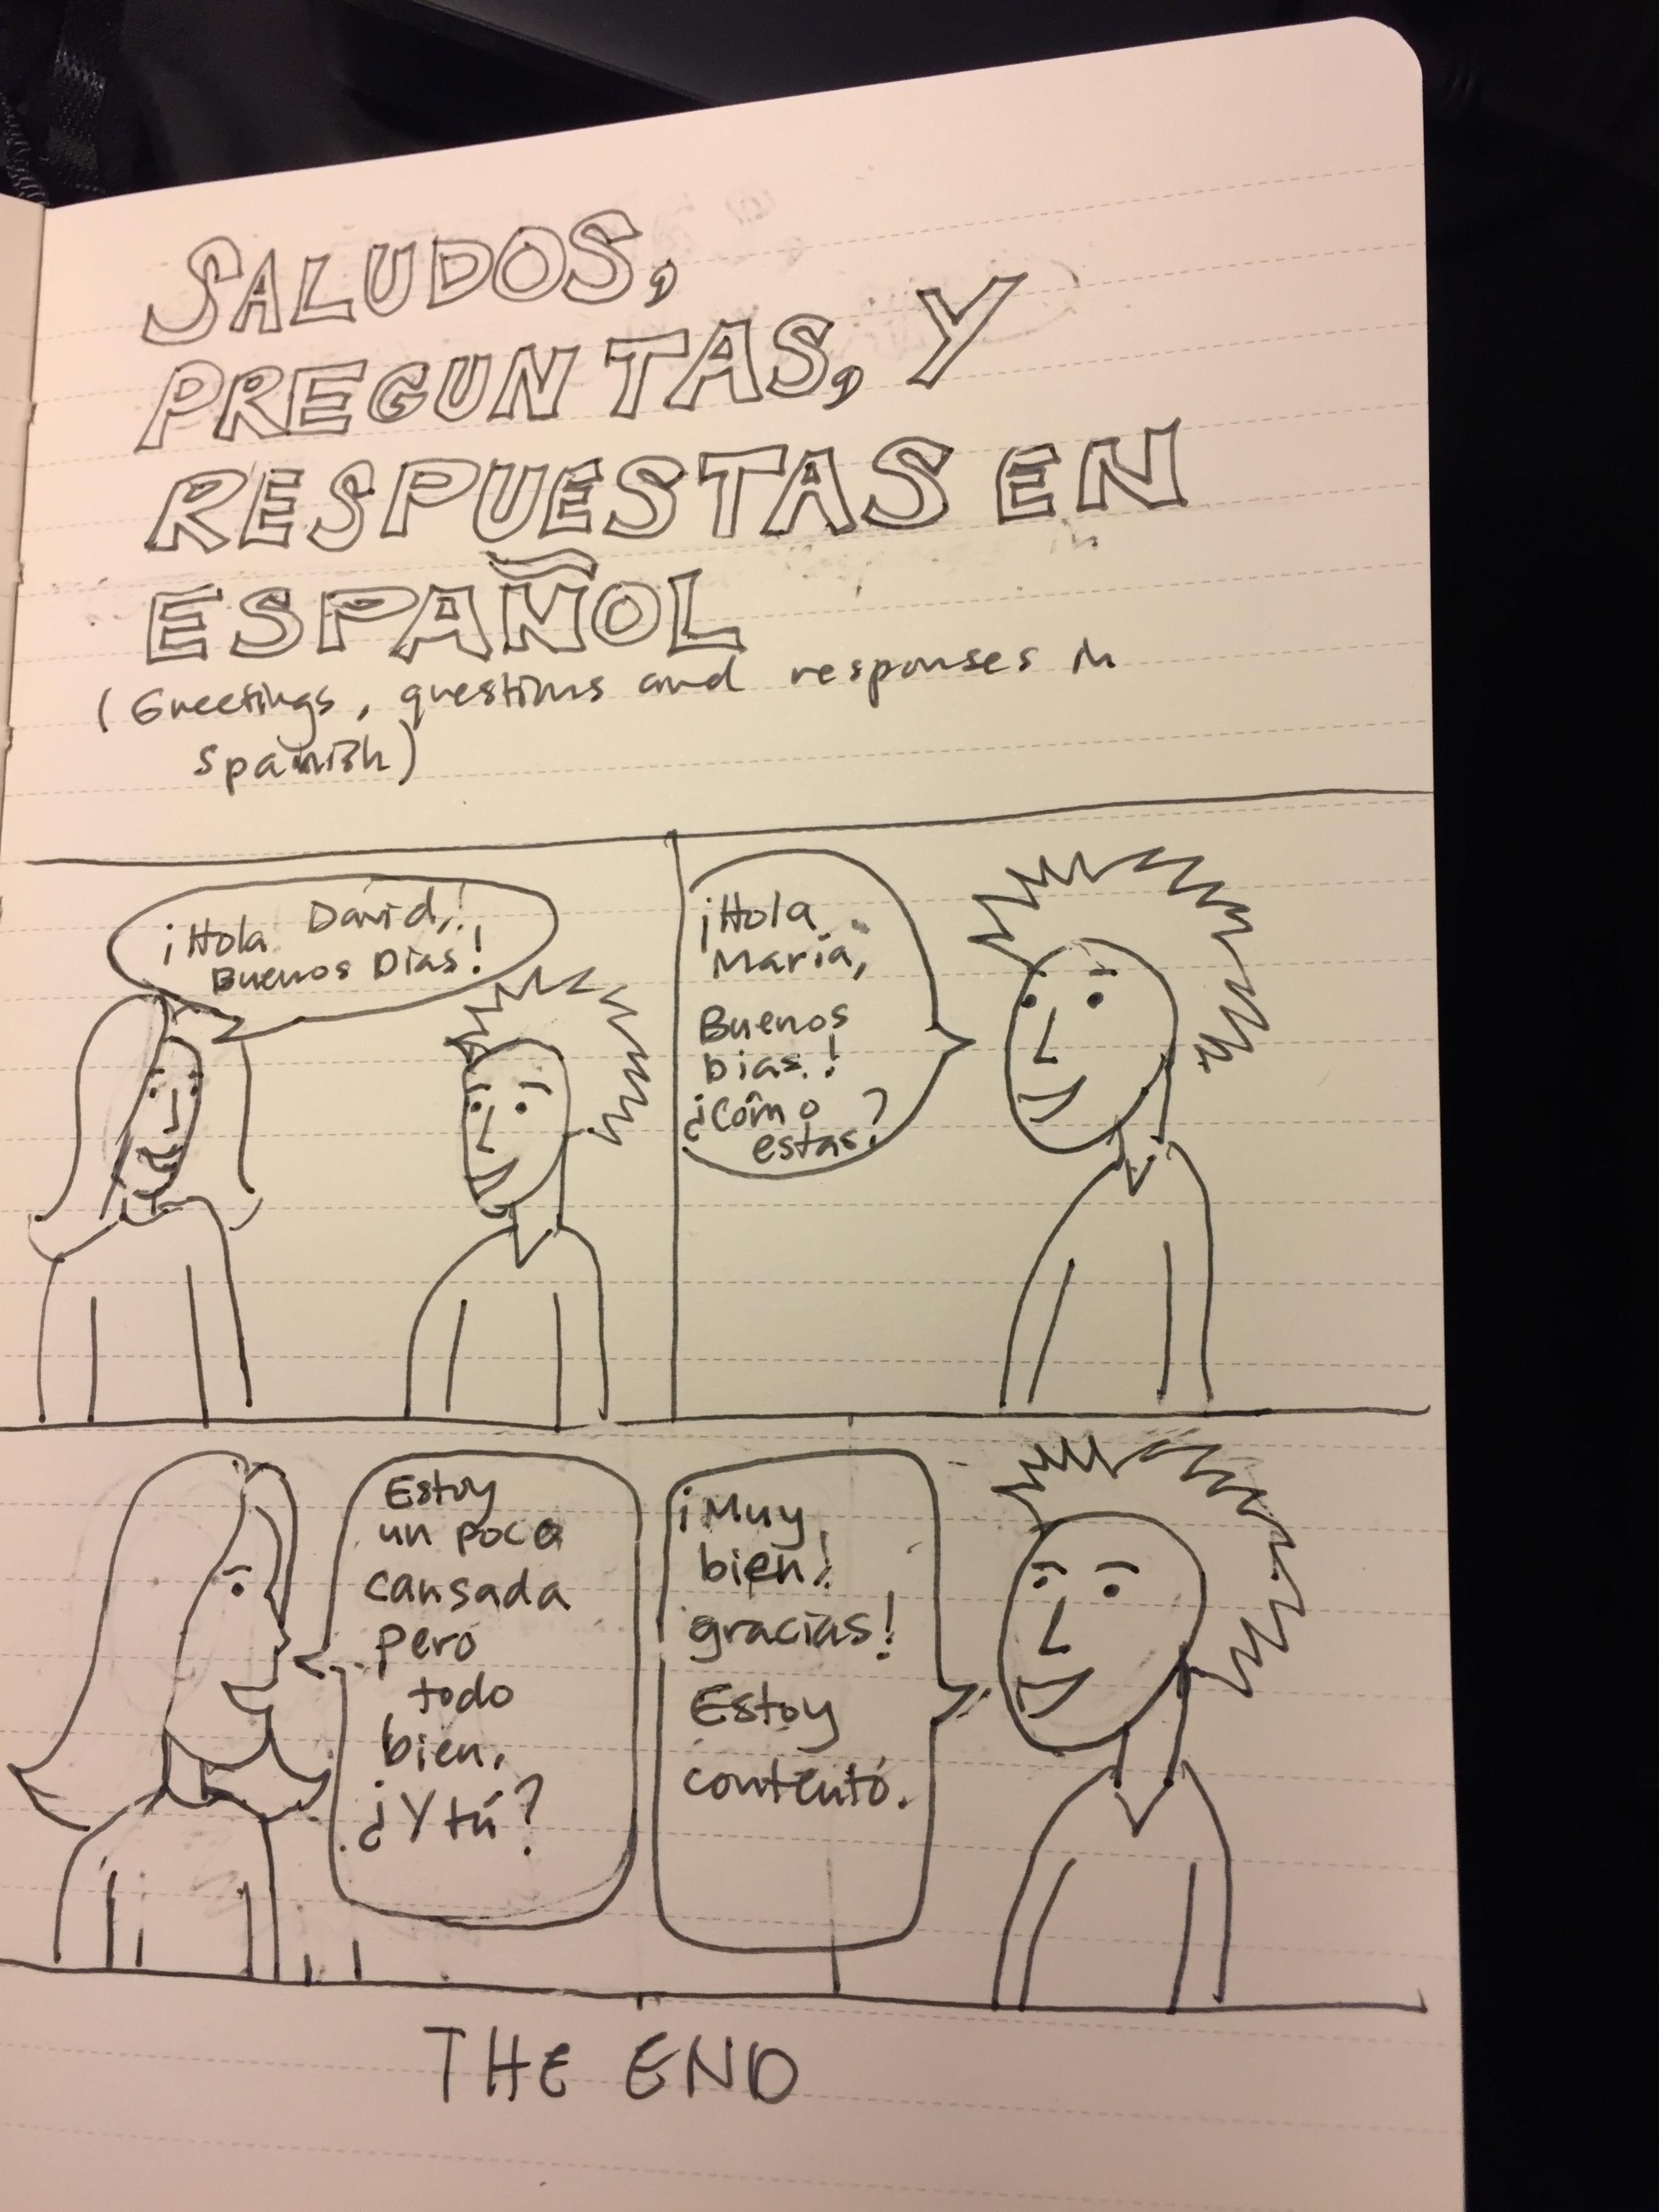 SALUDOS,
PREGUNTAS, Y
RESPUESTAS EN
ESPAÑOL
(Greetings, questions and responses in
Spanish)
¡Hola David,!
Buenos Días!
¡Hola
María,
Buenos
Días!
¿Cómo
estas?
Estoy
un poco
cansada
pero
todo
bien.
¿Y tú?
¡Muy
bien!
gracias!
Estoy
contentó.
THE END